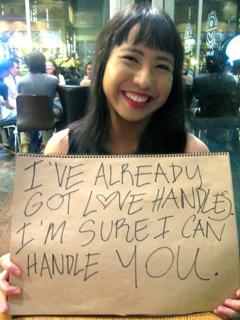 I'VE ALREADY
GOT L♡VE HANDLES.
I'M SURE I CAN
HANDLE YOU.